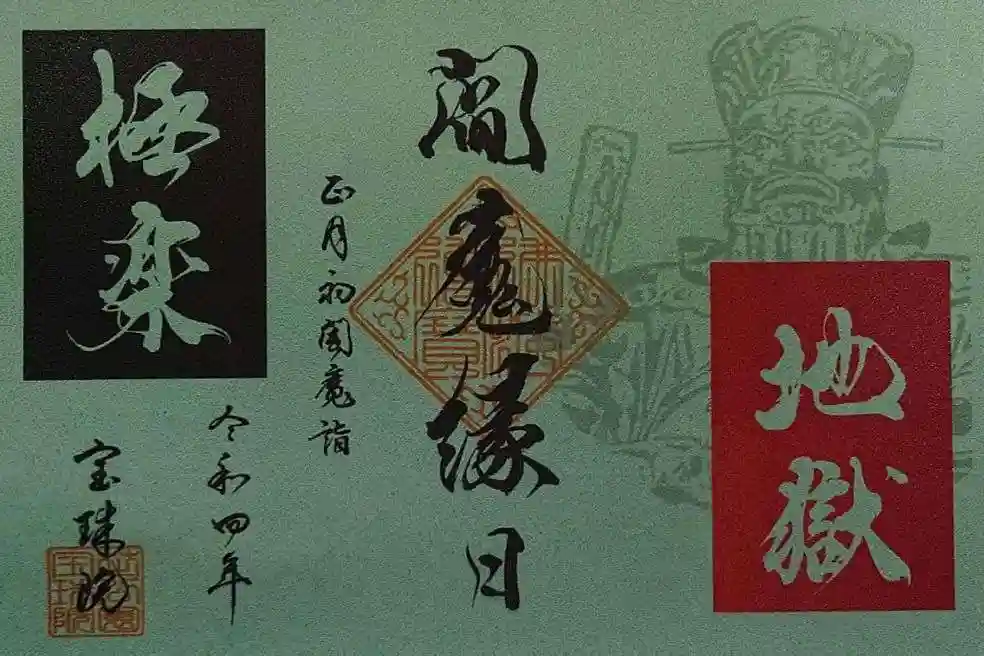 地獄
閻魔縁日
正月初閻魔詣
令和四年
極楽
宝珠院